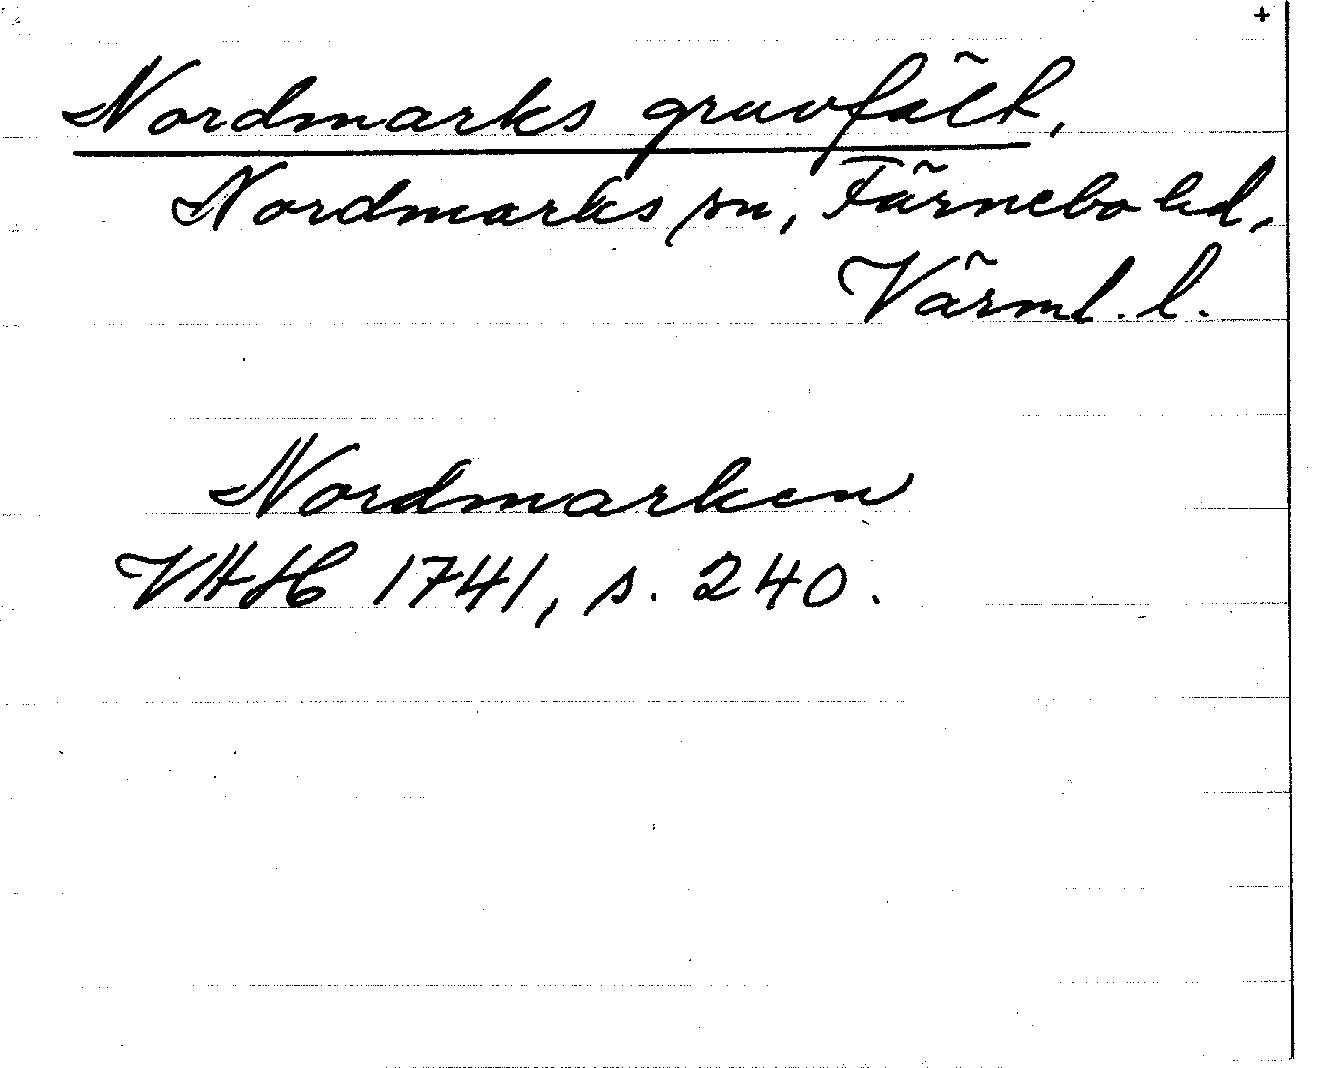 +
Nordmarks gruvfält,
Nordmarks sn, Färnebo hd,
Värml. l.
Nordmarken
VAH 1741, s. 240.